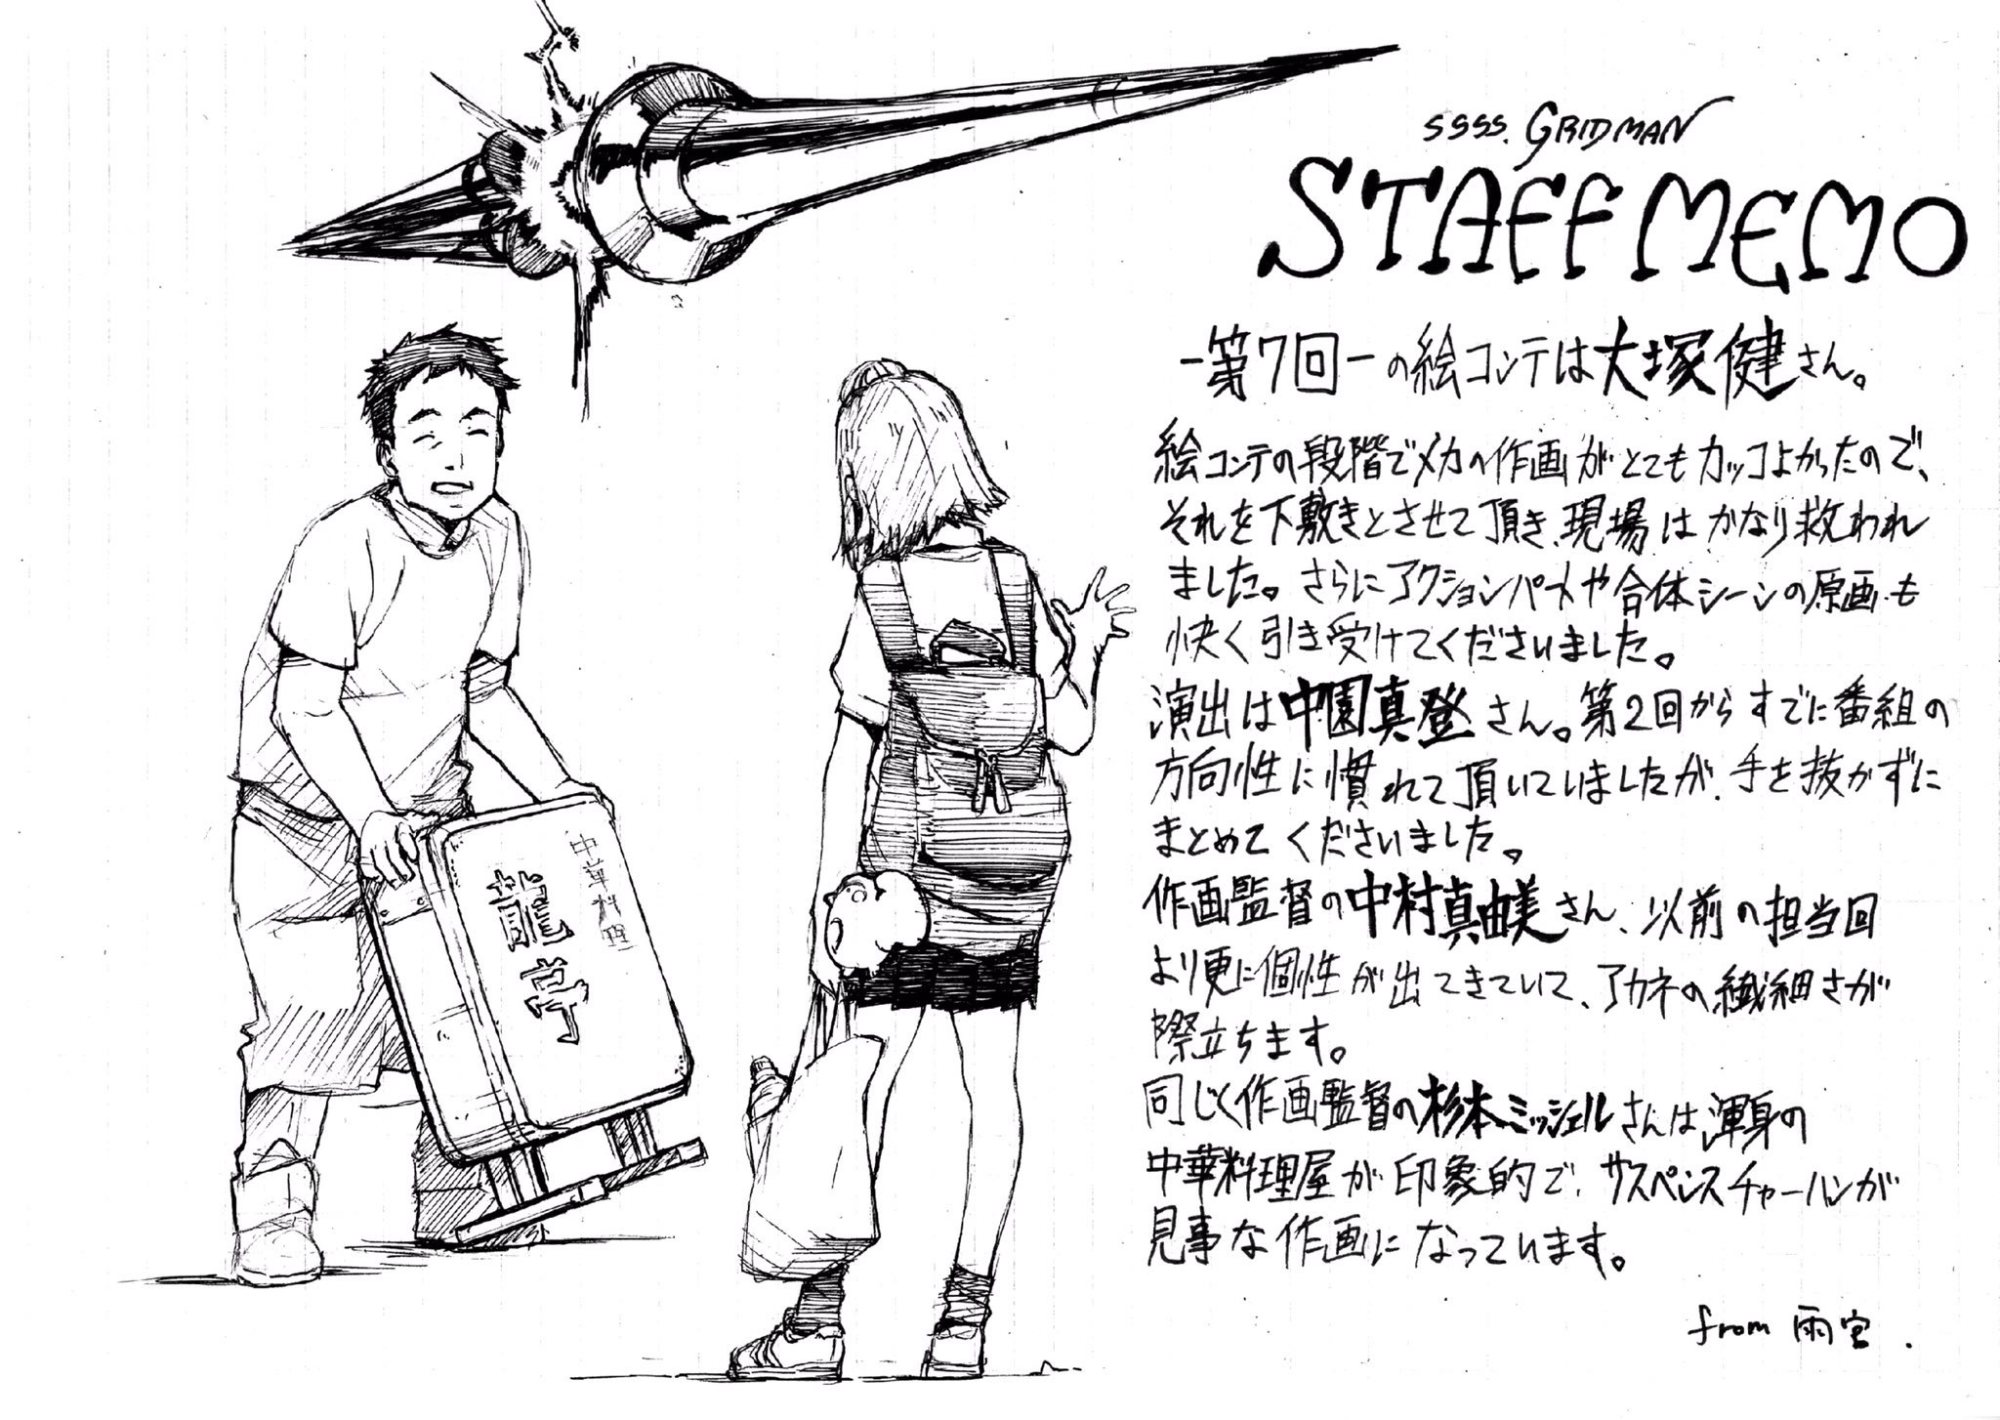 SSSS.GRIDMAN
STAFF MEMO
-第7回-の絵コンテは大塚健さん。
絵コンテの段階でメカの作画がとてもカッコよかったので、
それを下敷きとさせて頂き、現場はかなり救われ
ました。さらにアクションパートや合体シーンの原画も
快く引き受けてくださいました。
演出は中園真登さん。第2回からすでに番組の
方向性に慣れて頂いていましたが、手を抜かずに
まとめてくださいました。
作画監督の中村真由美さん、以前の担当回
より更に個性が出てきていて、アカネの繊細さが
際立ちます。
同じく作画監督の杉本ミッシェルさんは渾身の
中華料理屋が印象的で、サスペンスチャーハンが
見事な作画になっています。
from 雨宮.
中華料理
龍亭